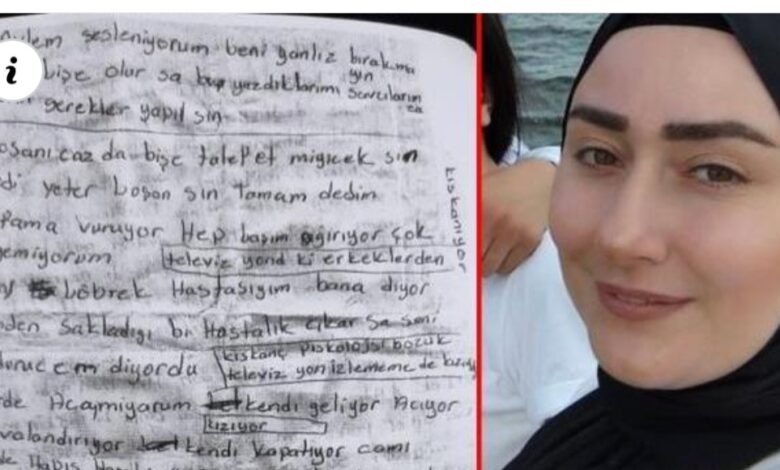 sesleniyorum beni yanlız bırakma
yın
bişe olur sa bu yazdıklarımı savcılarım
za
gerekler yapıl sın
oşanıcaz da bişe talep et miyicek sin
di yeter boşan sin Tamam dedim
kıskanıyor
fama vuruyor Hep başım ağırıyor çok
emiyorum televiz yond ki erkeklerden
Löbrek Hastasıyım bana diyor
nden sakladığı bi Hastalık çıkar sa seni
kıskanç piskolojsi bozuk
dürücem diyordu televiz yon izlememe de kızıyor
de Açamıyarum kendi geliyor Acıyor
kızıyor
valandırıyor kendi kapatıyor camı
i